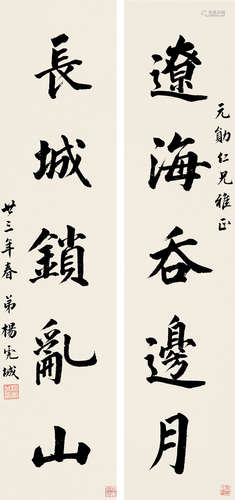 元勛仁兄雅正
遼海吞邊月
長城鎖亂山
卅三年春 弟楊虎城